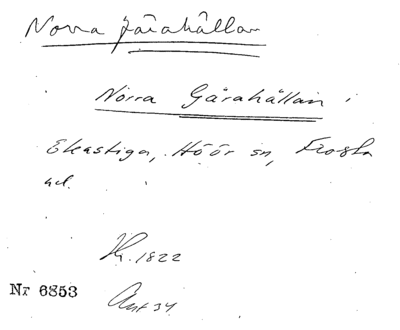 Norra Järahällan
Norra Gårahällan i
Ekastiga, Höör sn, Frosta
hd.
Kr. 1822
Nr 6853
Ant 34